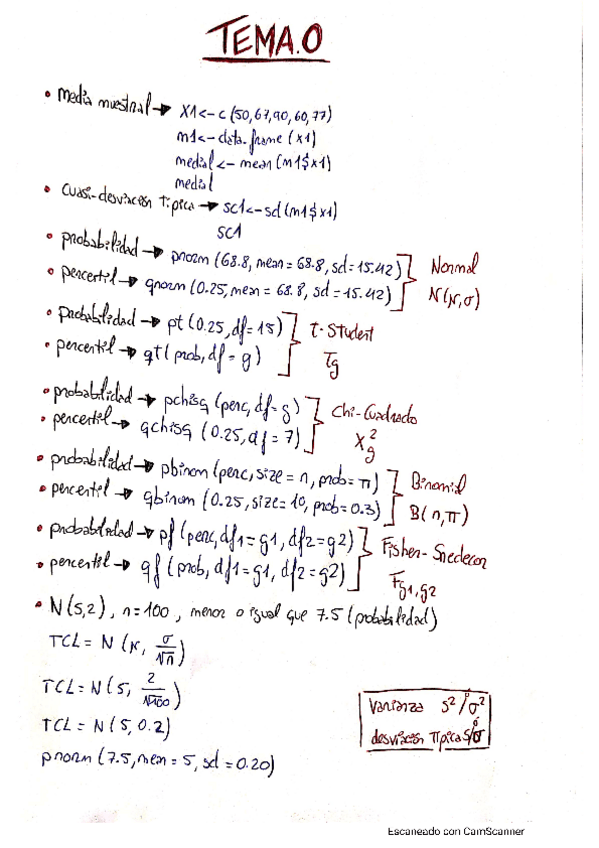 TEMA.0
• media muestral → X1<-c(50,67,90,60,77)
m1<-data.frame(x1)
media1<-mean(m1$x1)
media1
• cuasi-desviación típica → sc1<-sd(m1$x1)
sc1
• probabilidad → pnorm(68.8, mean=68.8, sd=15.42)
• percentil → qnorm(0.25, mean=68.8, sd=15.42)
Normal
N(N,σ)
• probabilidad → pt(0.25, df=15)
• percentil → qt(prob, df=g)
t-Student
Tg
• probabilidad → pchisq(perc, df=g)
• percentil → qchisq(0.25, df=7)
Chi-Cuadrado
X²g
• probabilidad → pbinom(perc, size=n, prob=π)
• percentil → qbinom(0.25, size=10, prob=0.3)
Binomial
B(n,π)
• probabilidad → pf(perc, df1=g1, df2=g2)
• percentil → qf(prob, df1=g1, df2=g2)
Fisher-Snedecor
Fg1,g2
• N(5,2), n=100, menor o igual que 7.5 (probabilidad)
TCL = N(N, σ/√n)
TCL = N(5, 2/√100)
TCL = N(5, 0.2)
pnorm(7.5, mean=5, sd=0.20)
Varianza s²/σ²
desviación típica s/σ
Escaneado con CamScanner